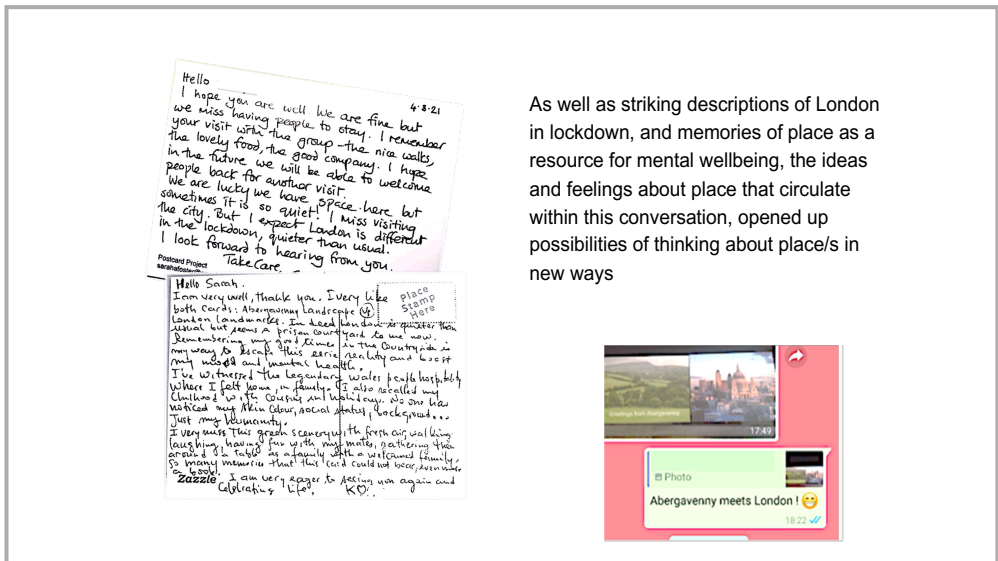 Hello
4·3·21
I hope you are well. We are fine but
we miss having people to stay. I remember
your visit with the group - the nice walks,
the lovely food, the good company. I hope
in the future we will be able to welcome
people back for another visit.
We are lucky we have space here but
sometimes it is so quiet! I miss visiting
the city. But I expect London is different
in the lockdown, quieter than usual.
I look forward to hearing from you.
Take Care,
Postcard Project
Hello Sarah.
I am very well, thank you. I very like
both cards: Abergavenny Landscape
London landmarks. In deed London is quieter than
usual but seems a prison court yard to me now.
Remembering my good times in the Countryside is
my way to escape this eerie reality and boost
my mood and mental health.
I've witnessed the Legendary wales people hospitality
where I felt home, in family. I also recalled my
Childhood with Cousins in holidays. No one has
noticed my skin colour, social status, background...
Just my humanity.
I very miss this green scenery with fresh air, walking
laughing, having fun with my mates, gathering
around a table as a family with a welcomed family.
So many memories that this card could not bear, even
a book.
I am very eager to seeing you again and
Celebrating life.
K♡
Place
Stamp
Here
Zazzle
As well as striking descriptions of London
in lockdown, and memories of place as a
resource for mental wellbeing, the ideas
and feelings about place that circulate
within this conversation, opened up
possibilities of thinking about place/s in
new ways
Greetings from Abergavenny
17:49
Photo
Abergavenny meets London ! 😁
18:22